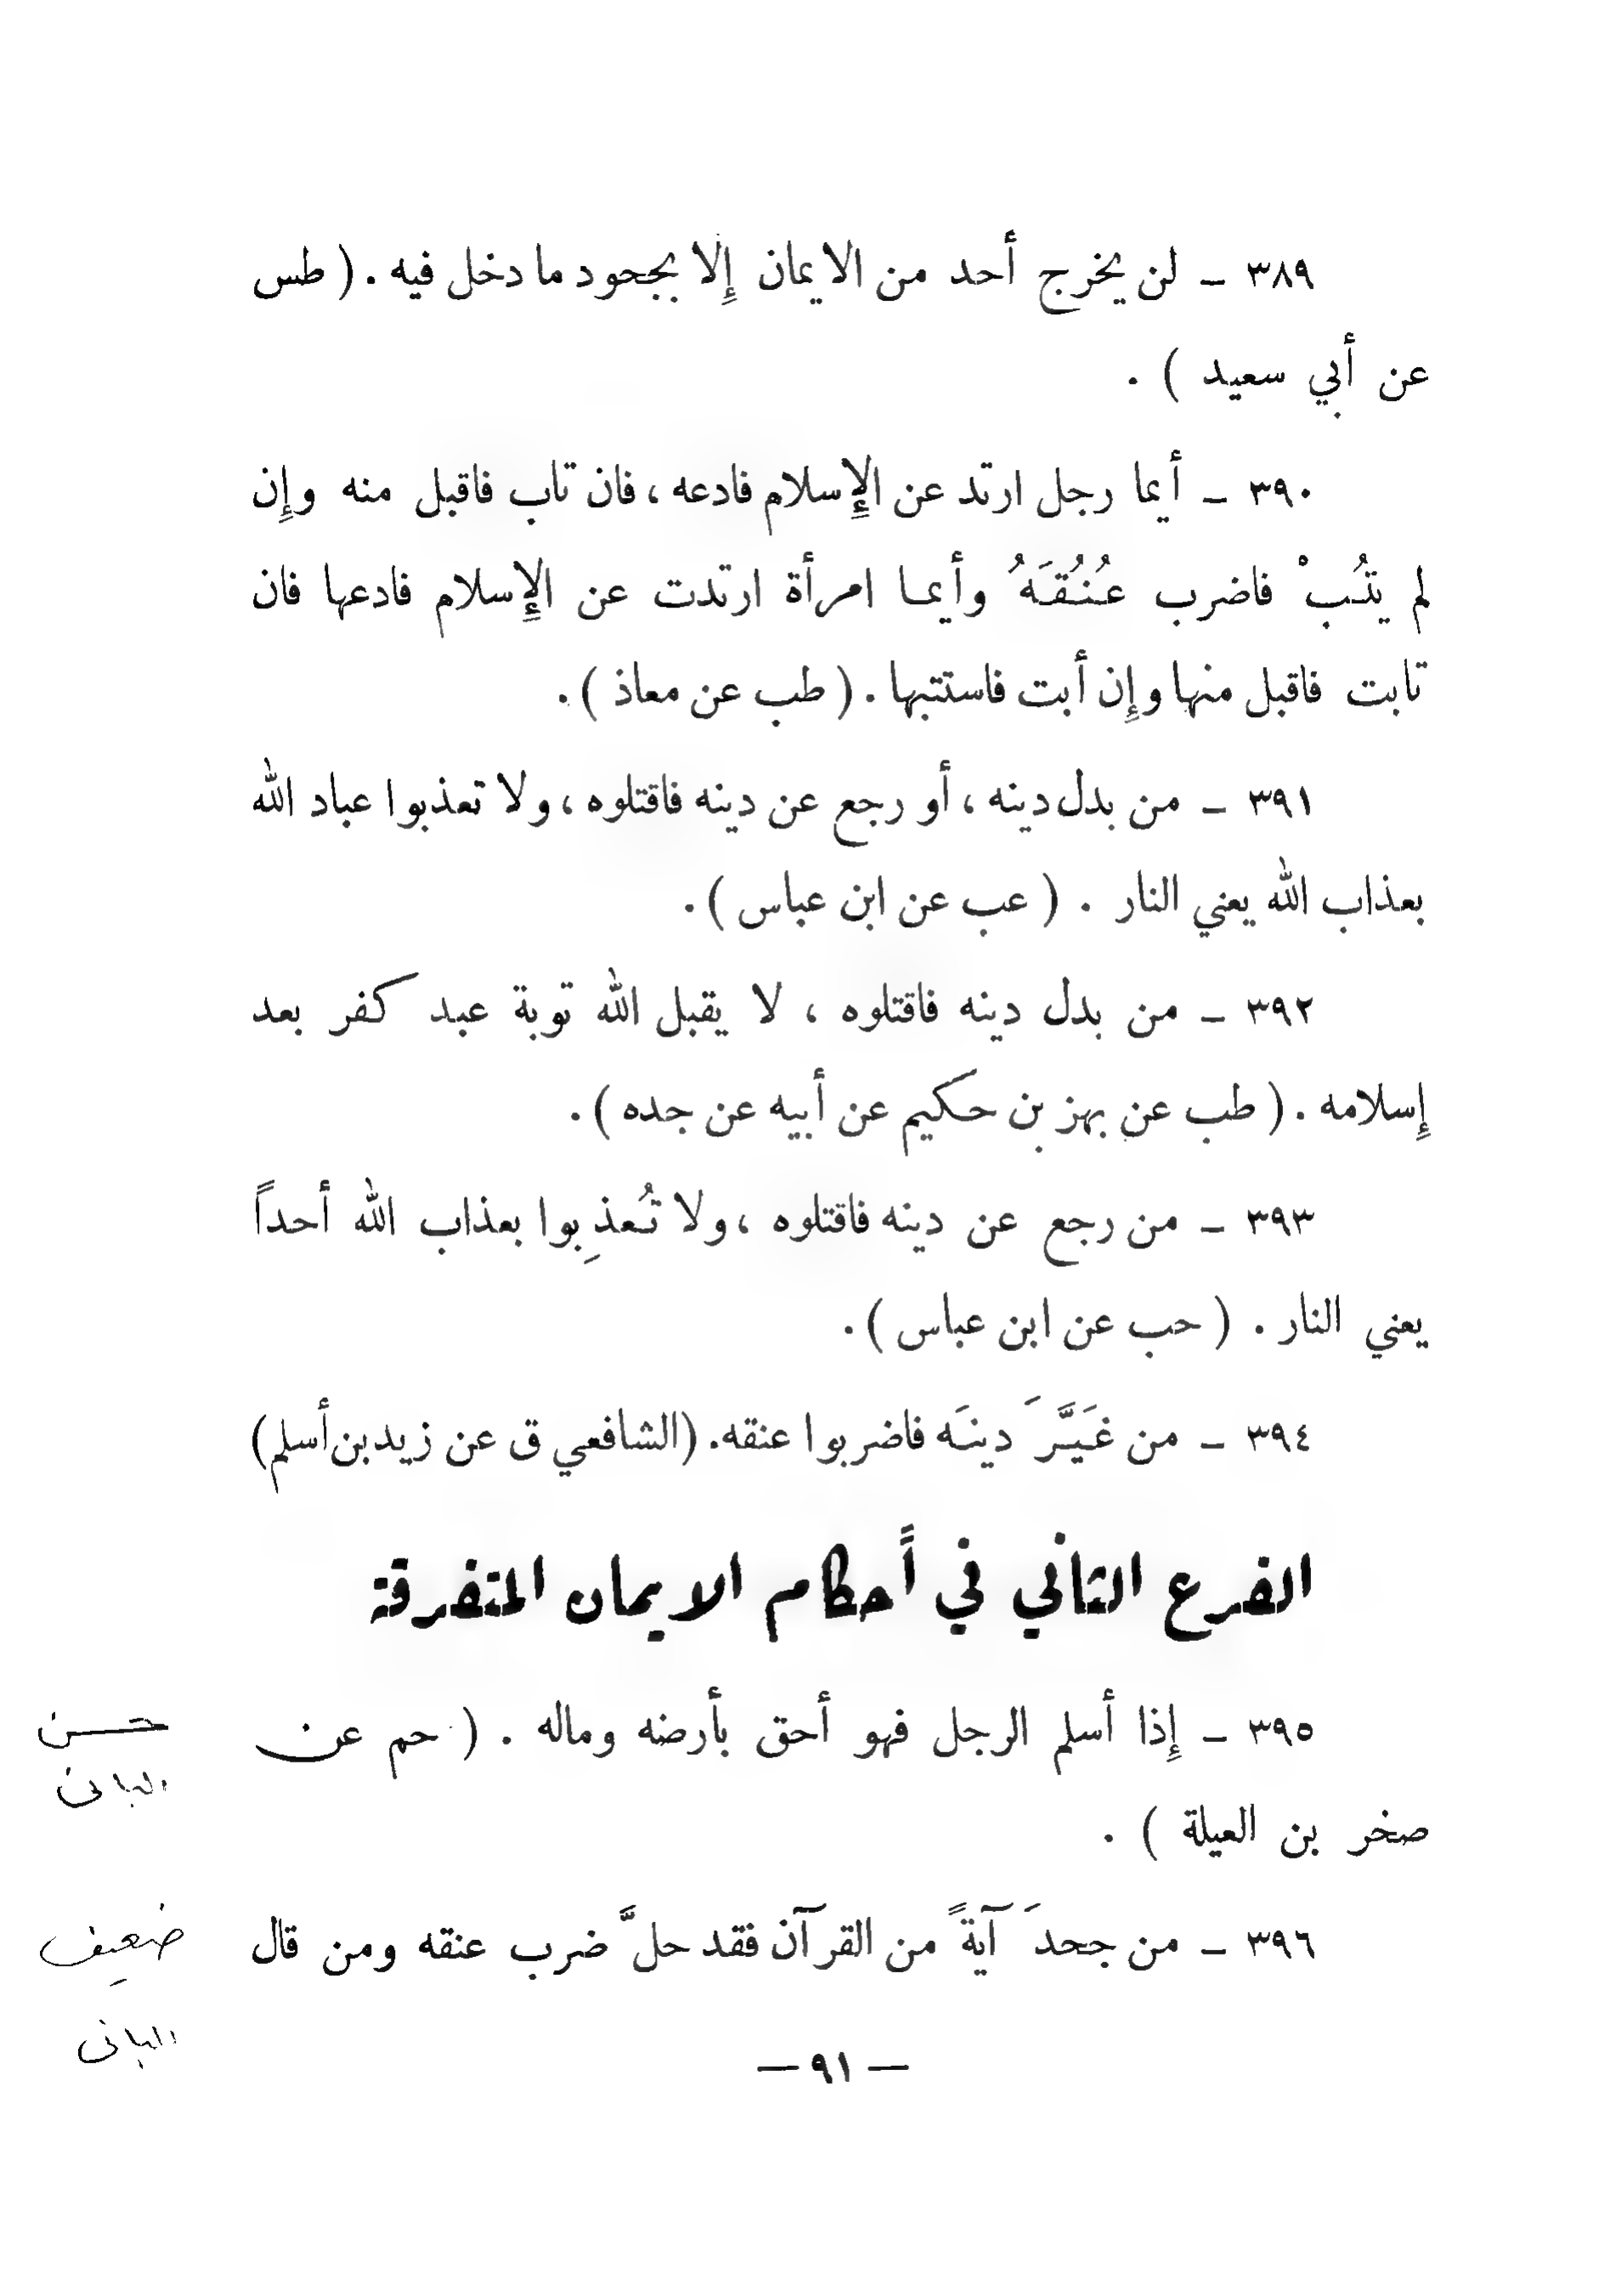 ٣٨٩ – لن يخرج أحد من الايمان إِلا بجحود ما دخل فيه . ( طس
عن أبي سعيد ) .
٣٩٠ – أيما رجل ارتد عن الإِسلام فادعه ، فان تاب فاقبل منه وإِن
لم يتُبْ فاضرب عُنُقَهُ وأيما امرأة ارتدت عن الإِسلام فادعها فان
تابت فاقبل منها وإِن أبت فاستتبها . ( طب عن معاذ ) .
٣٩١ – من بدل دينه ، أو رجع عن دينه فاقتلوه ، ولا تعذبوا عباد الله
بعذاب الله يعني النار . ( عب عن ابن عباس ) .
٣٩٢ – من بدل دينه فاقتلوه ، لا يقبل الله توبة عبد كفر بعد
إِسلامه . ( طب عن بهز بن حكيم عن أبيه عن جده ) .
٣٩٣ – من رجع عن دينه فاقتلوه ، ولا تُعذِبوا بعذاب الله أحداً
يعني النار . ( حب عن ابن عباس ) .
٣٩٤ – من غَيَّرَ دينَه فاضربوا عنقه. (الشافعي ق عن زيد بن أسلم)
الفرع الثاني في أحكام الايمان المتفرقة
٣٩٥ – إِذا أسلم الرجل فهو أحق بأرضه وماله . ( حم عن
حسن
البانی
صخر بن العيلة ) .
٣٩٦ – من جحدَ آيةً من القرآن فقد حلَّ ضرب عنقه ومن قال
ضعیف
البانی
— ٩١ —